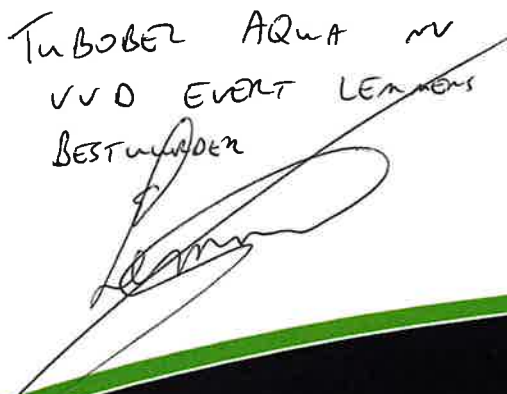 TUBOBEL AQUA NV
VVD EVERT LEMMENS
BESTUURDER